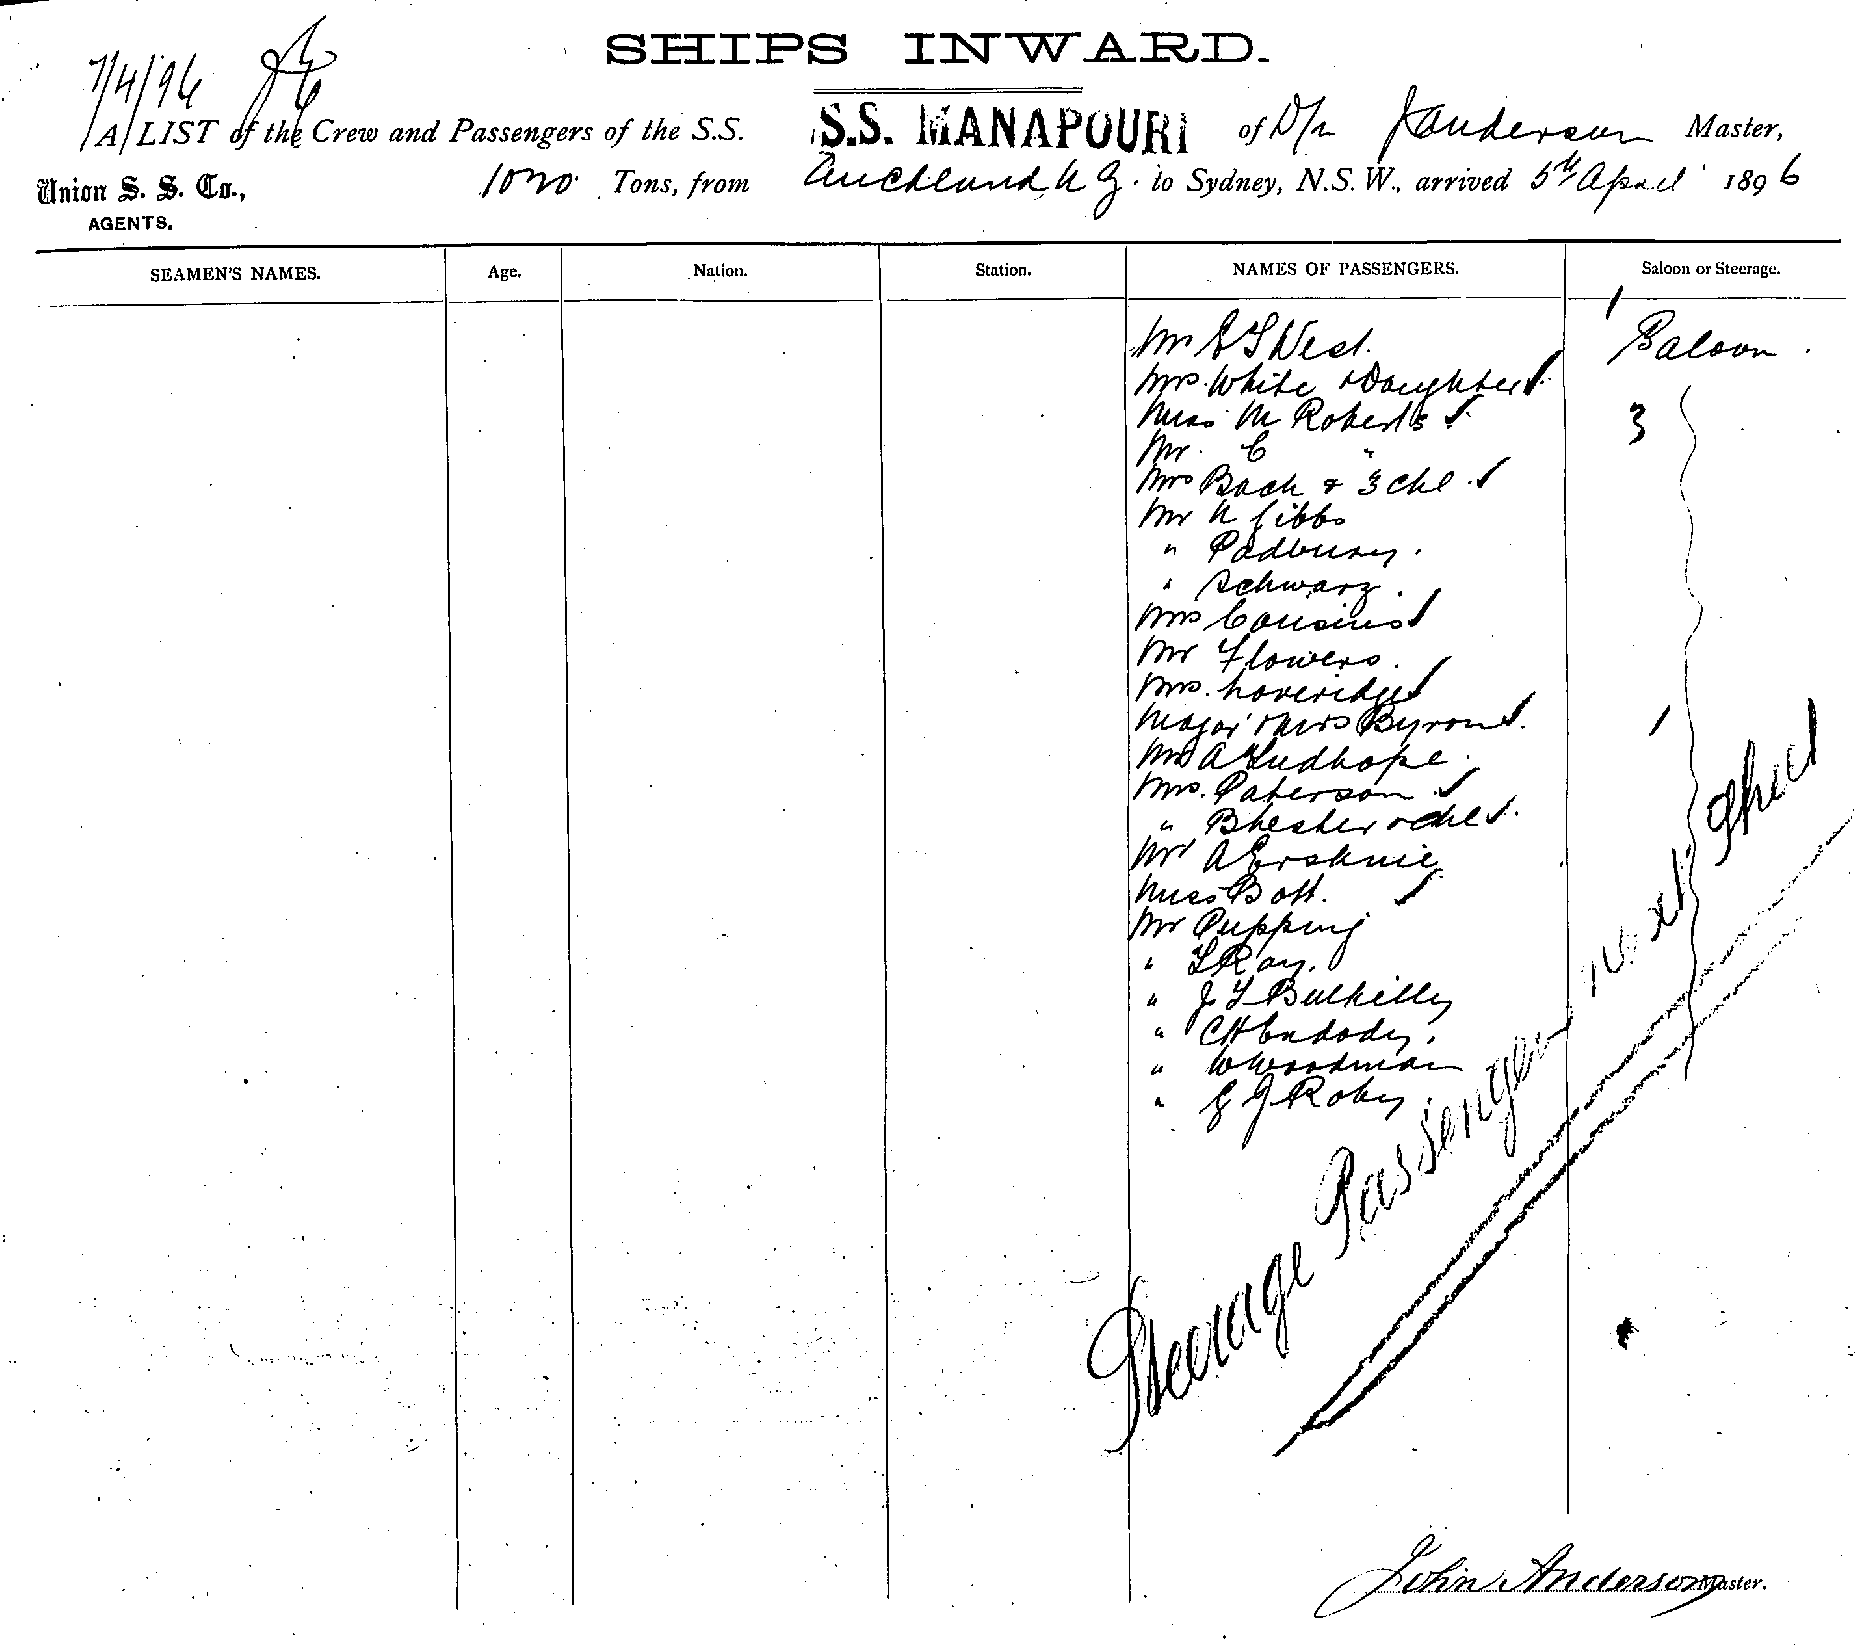 SHIPS INWARD.
7/4/96
A LIST of the Crew and Passengers of the S.S. S.S. MANAPOURI of D/n J Anderson Master,
Union S. S. Co., 1020 Tons, from Auckland N Z. to Sydney, N.S.W., arrived 5th April 1896
AGENTS.
SEAMEN'S NAMES. Age. Nation. Station. NAMES OF PASSENGERS. Saloon or Steerage.
1
Mr West. Saloon
Mrs. White & Daughter
Miss M Roberts 3
Mr. C "
Mrs Bach & 3 chl
Mr N Gibbs
" Padbury.
" Schwarz.
Mrs Cousins
Mr Flowers.
Mrs. Loveridge
Major & Mrs Byron 1
A Ludhope
Mrs. Paterson
" & chl
Mr A Erskine
Miss Bott.
Mr Pupping
" Ray.
" J
" CH
" W Woodman
" G J Roby
Steerage Passengers next Sheet
John Anderson Master.